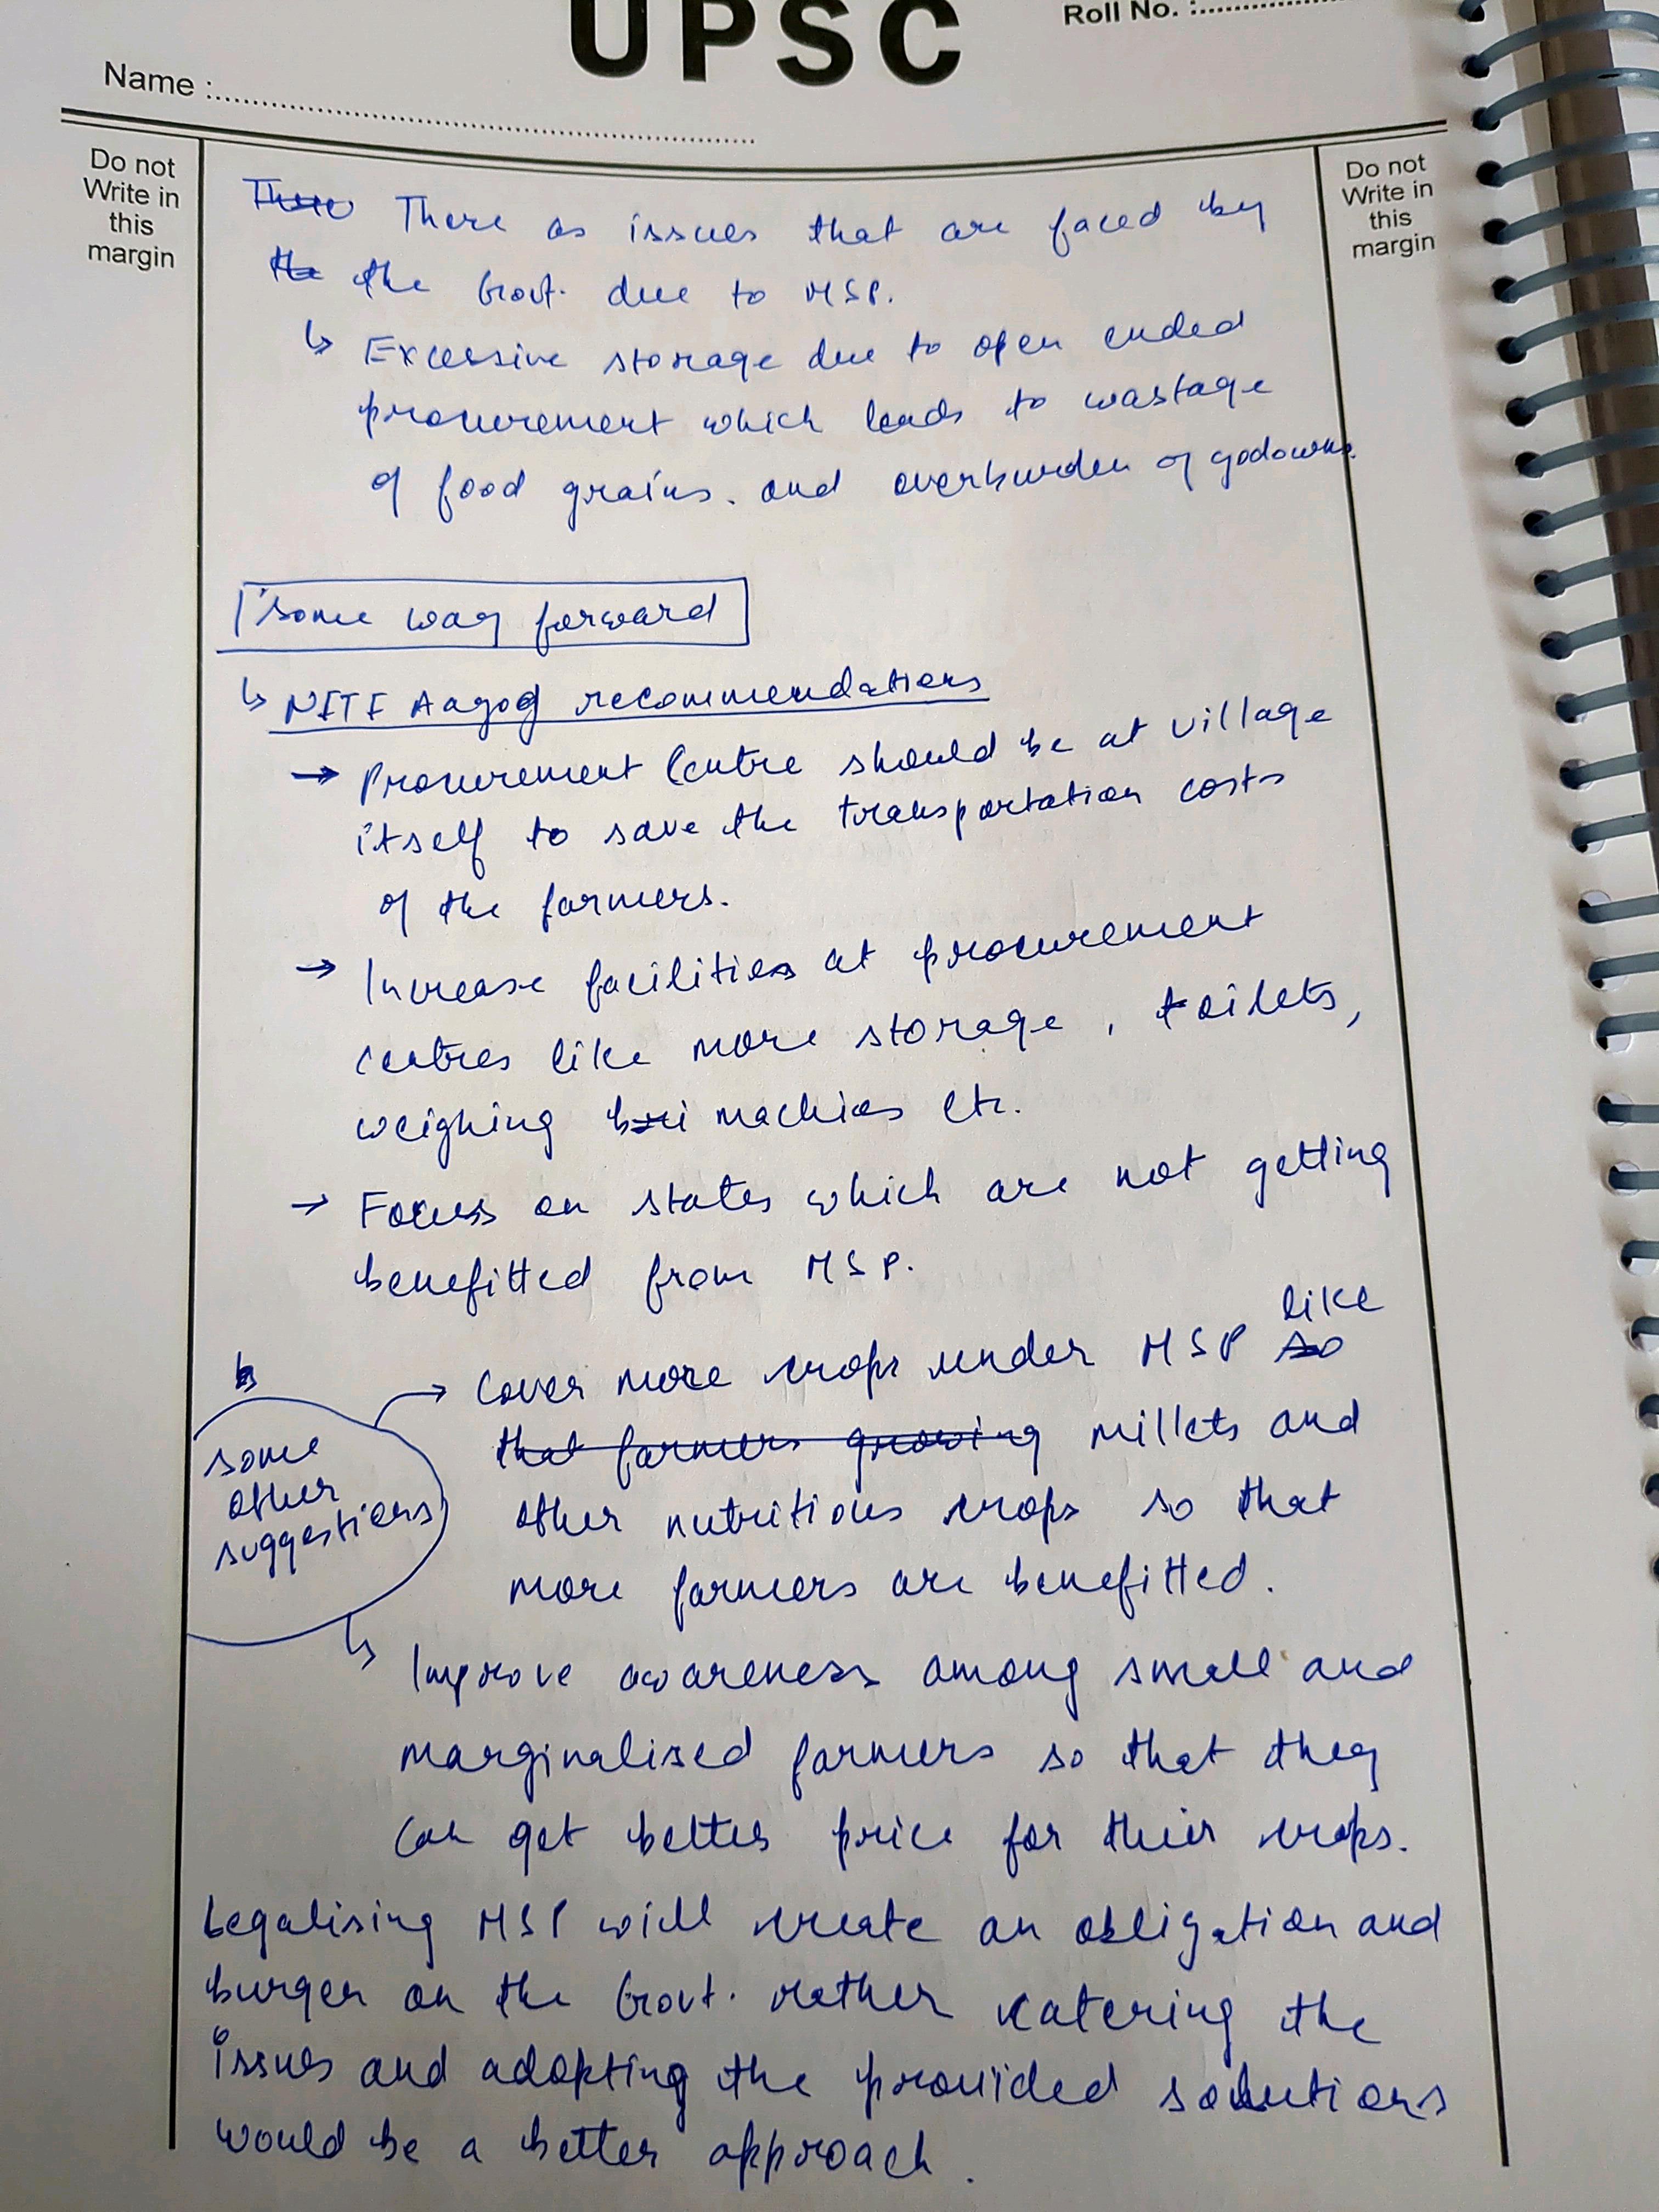 UPSC
Roll No. :
Name :
Do not
Write in
this
margin
Do not
Write in
this
margin
There There as issues that are faced by
the the Govt. due to MSP.
↳ Excessive storage due to open ended
procurement which leads to wastage
of food grains. and overburden of godowns.
some way forward
↳ NITI Aayog recommendations
→ Procurement Centre should be at village
itself to save the transportation costs
of the farmers.
→ Increase facilities at procurement
centres like more storage, toilets,
weighing machies etc.
→ Focus on states which are not getting
benefitted from MSP.
like
→ Cover more crops under MSP so
that farmers growing millets and
other nutritious crops so that
more farmers are benefitted.
some
other
suggestions
↳ Improve awareness among small and
marginalised farmers so that they
can get better price for their crops.
Legalising MSP will create an obligation and
burgen on the Govt. rather catering the
issues and adopting the provided solutions
would be a better approach.